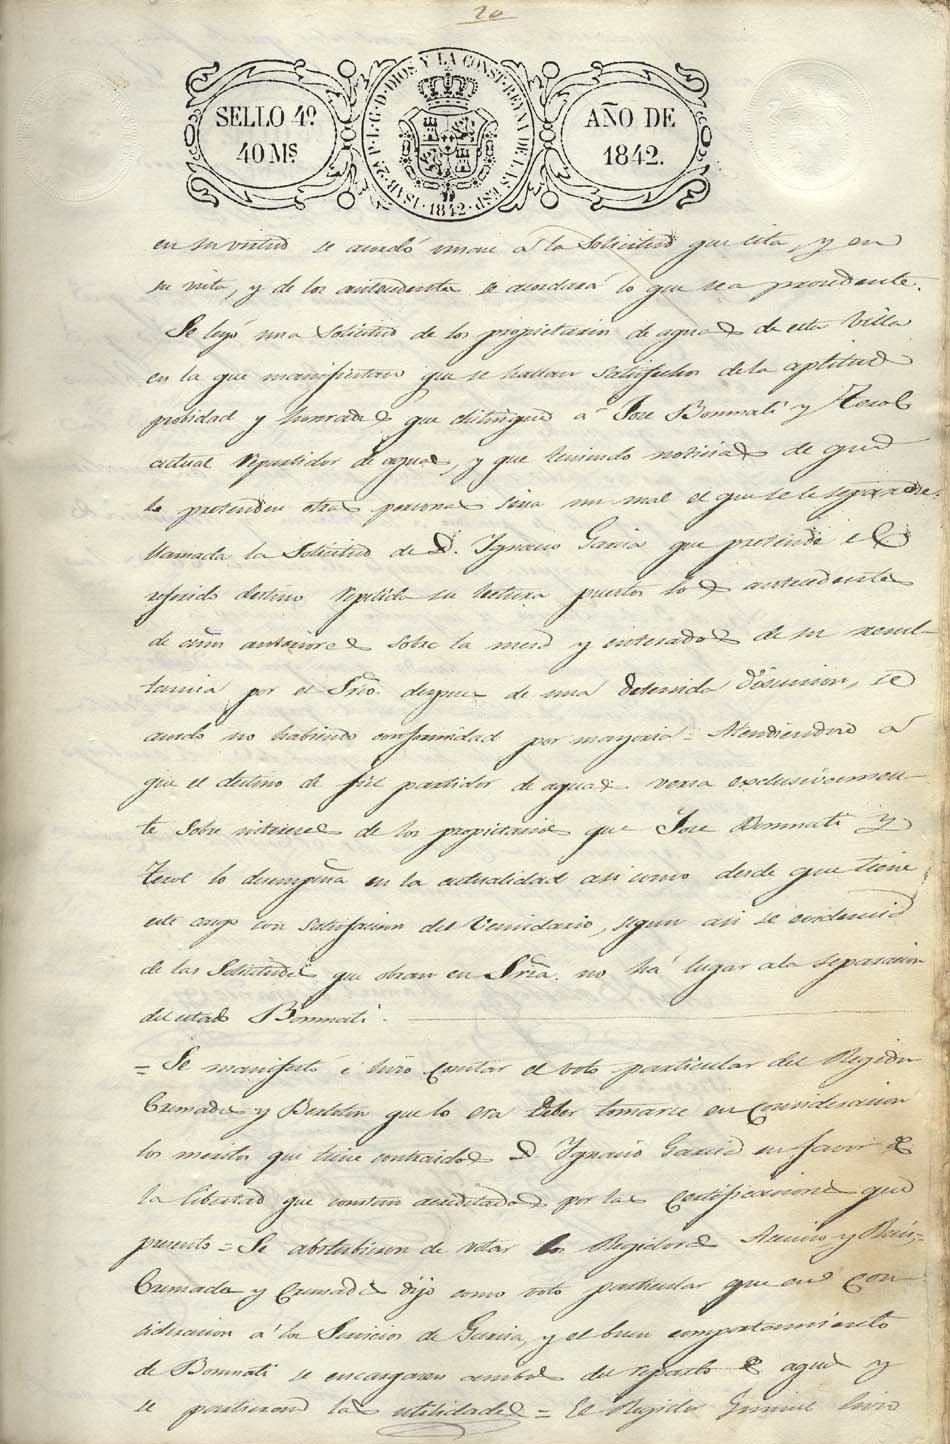 20
SELLO 4º
40 Ms
ISAB. 2ª P. L. G. D. DIOS Y LA CONST. REYNA DE LAS ESP.
1842
AÑO DE
1842.
en su virtud se acordó unirse á la Solicitud que cita, y en
su vista, y de los antecedentes se acordará lo que sea procedente.
Se leyó una Solicitud de los propietarios de aguas de esta Villa
en la que manifiestan que se hallan satisfechos de la aptitud
probidad y honradez que distingue á Jose Bonmati y Terol
actual repartidor de aguas, y que teniendo noticias de que
lo pretenden otras personas seria un mal el que se le separase:
llamada la Solicitud de D. Ignacio Garcia que pretende el
referido destino repetida su lectura puestos los antecedentes
de años anteriores sobre la mesa y enterados de su resul-
tancia por el Srio. despues de una detenida discusion, se
acordó no habiendo conformidad por mayoria = Atendiendo á
que el destino de fiel partidor de aguas versa exclusivamen-
te sobre intereses de los propietarios que Jose Bonmati y
Terol lo desempeña en la actualidad asi como desde que tiene
este cargo con satisfacion del Vecindario, segun asi se evidencia
de las Solicitudes que obran en Sria. no há lugar a la separacion
del citado Bonmati.
= Se manifestó é hizo constar el voto particular del Regidor
Cremades y Bestetin que lo era deber tomarse en Consideracion
los meritos que tiene contraidos D Ignacio Garcia en favor de
la libertad que constan acreditados por las Certificaciones que
presentó = Se abstubieron de votar los Regidores y
Cremades y Cremades dijo como voto particular que en con
sideracion á los Servicios de Garcia, y el buen comportamiento
de Bonmati se encargasen ambos del reparto de aguas y
se partieran las utilidades = El Regidor hizo